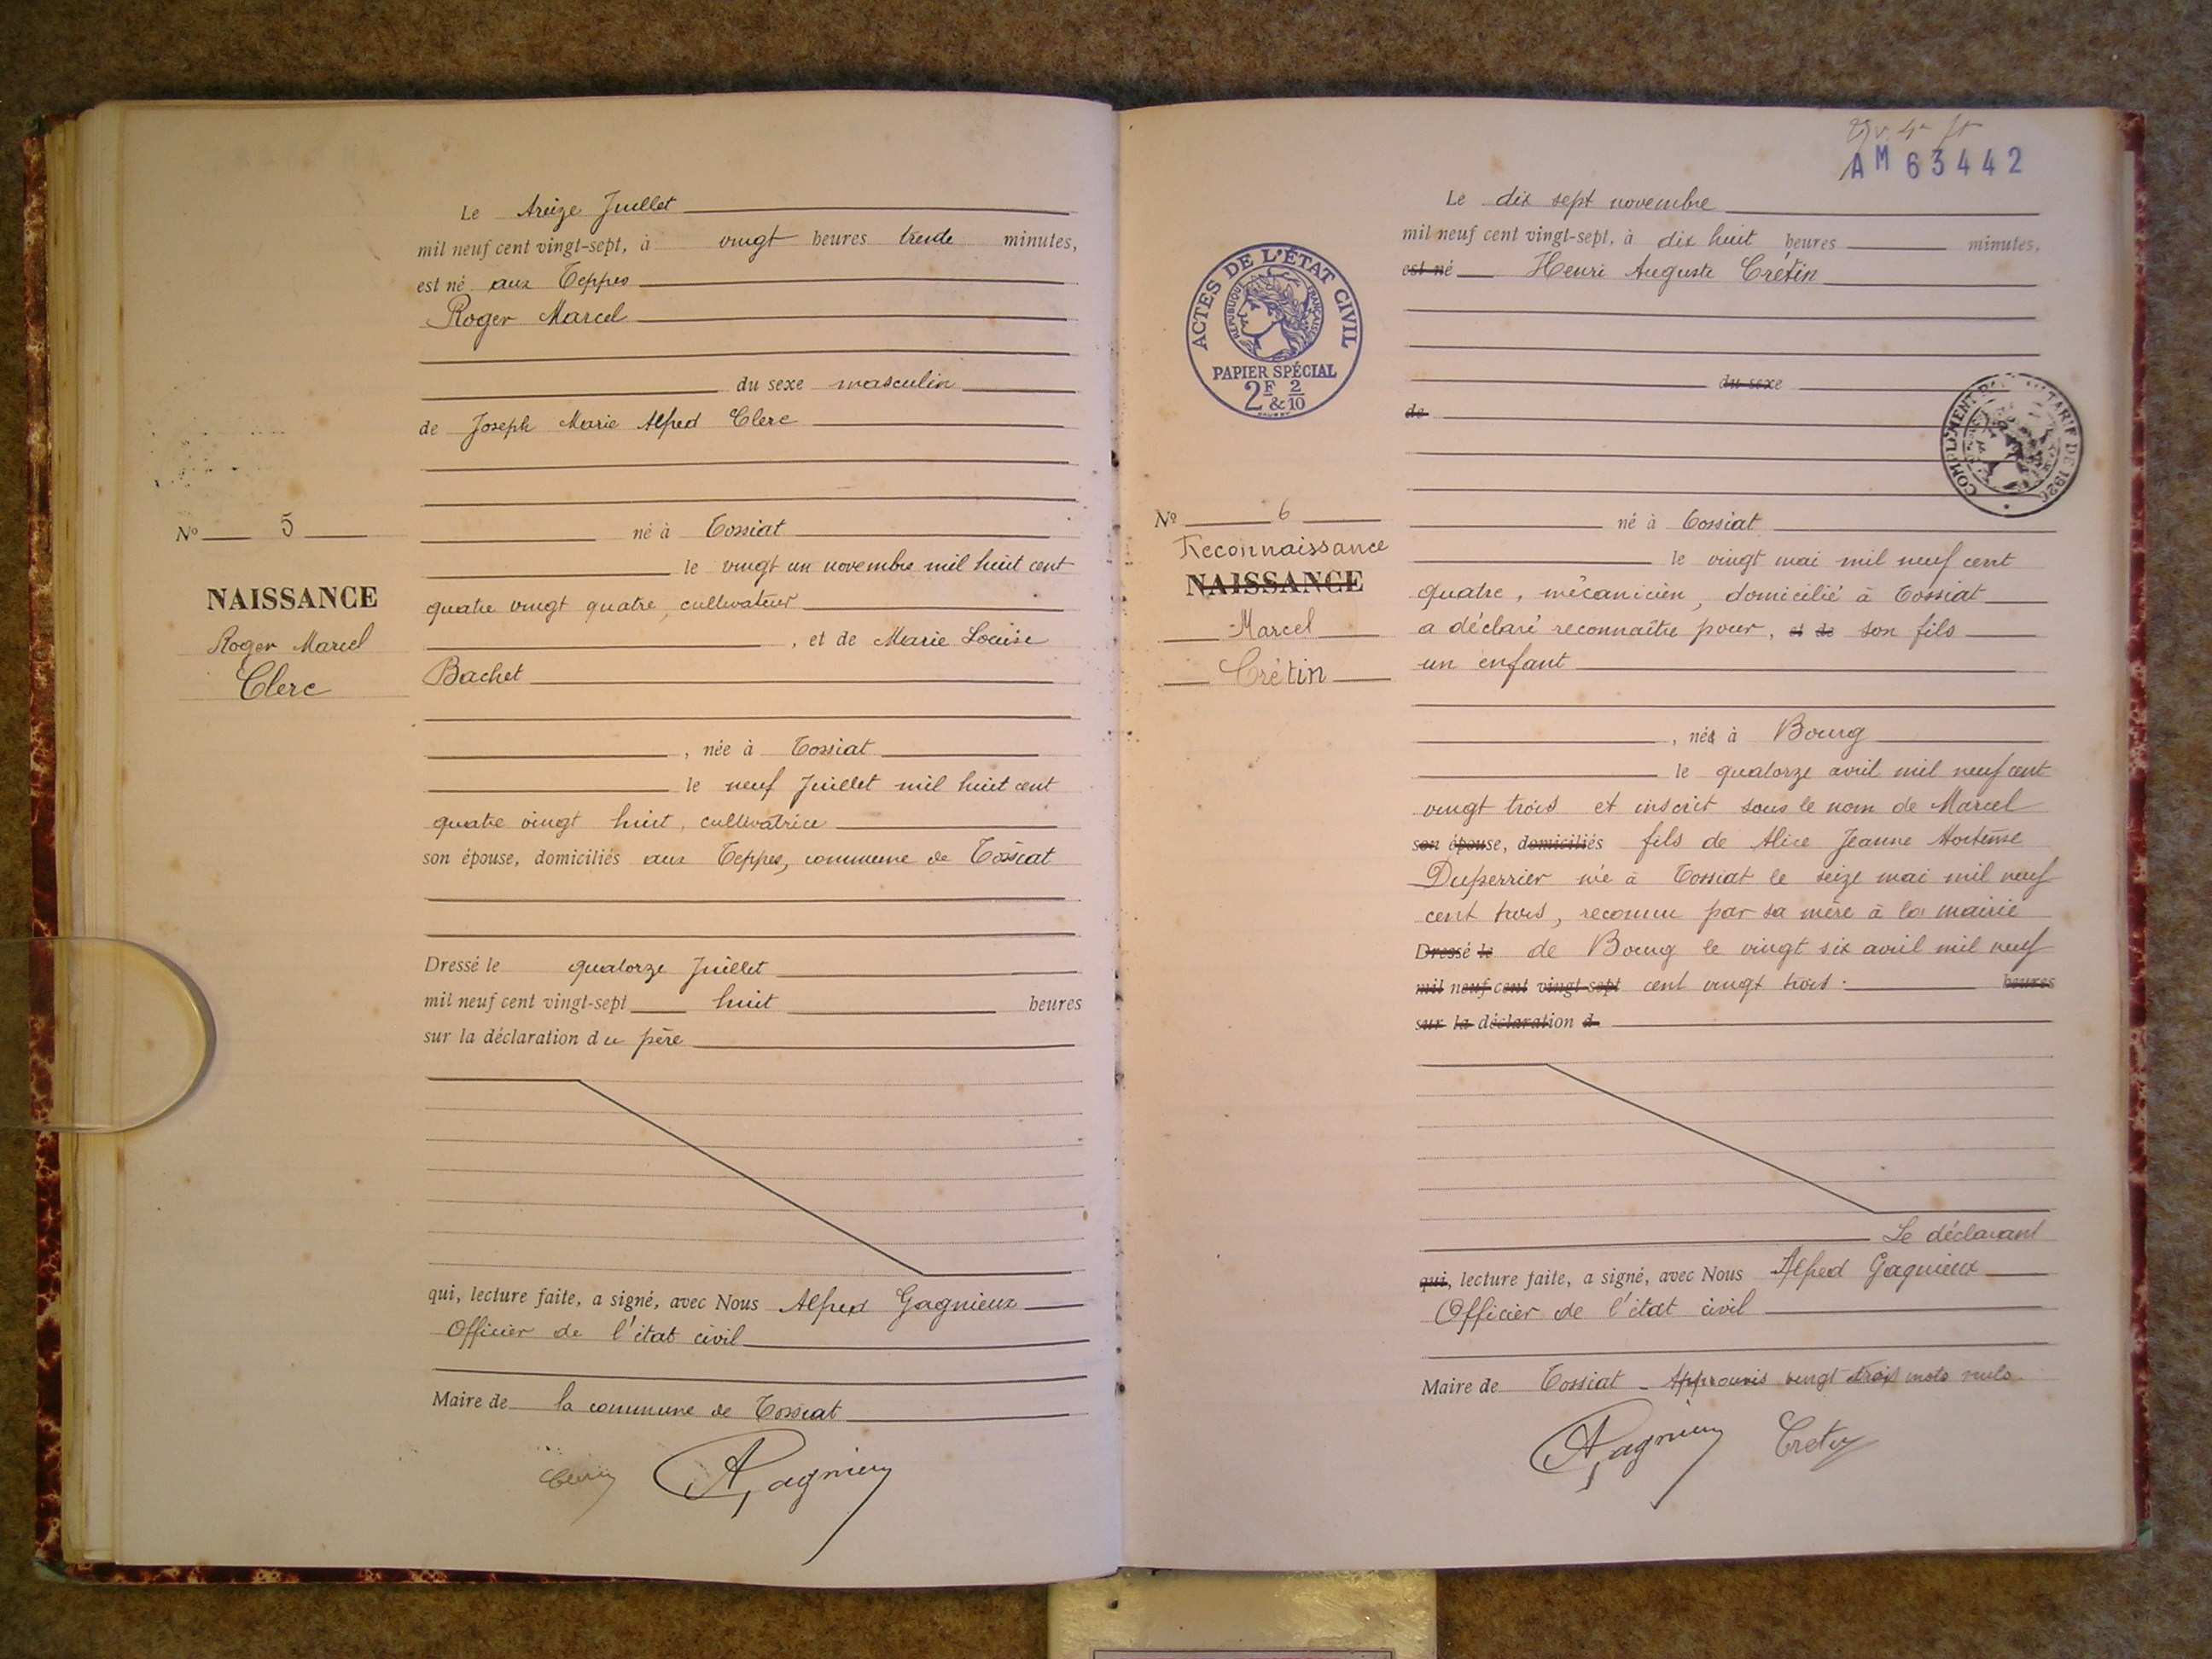 Le treize Juillet
mil neuf cent vingt-sept, à vingt heures trente minutes,
est né aux Teppes
Roger Marcel
du sexe masculin
de Joseph Marie Alfred Clerc
né à Tossiat
le vingt un novembre mil huit cent
quatre vingt quatre, cultivateur
, et de Marie Louise
Bachet
, née à Tossiat
le neuf Juillet mil huit cent
quatre vingt huit, cultivatrice
son épouse, domiciliés aux Teppes, commune de Tossiat
Dressé le quatorze Juillet
mil neuf cent vingt-sept huit heures
sur la déclaration du père
qui, lecture faite, a signé, avec Nous Alfred Gagnieux
Officier de l'état civil
Maire de la commune de Tossiat
No 5
NAISSANCE
Roger Marcel
Clerc
AM 63442
Le dix sept novembre
mil neuf cent vingt-sept, à dix huit heures minutes,
est né Henri Auguste Crétin
du sexe
de
né à Tossiat
le vingt mai mil neuf cent
quatre, mécanicien, domicilié à Tossiat
a déclaré reconnaître pour, et de son fils
un enfant
, né à Bourg
le quatorze avril mil neuf cent
vingt trois et inscrit sous le nom de Marcel
son épouse, domiciliés fils de Alice Jeanne Hortense
Duperrier né à Tossiat le seize mai mil neuf
cent trois, reconnu par sa mère à la mairie
Dressé le de Bourg le vingt six avril mil neuf
mil neuf cent vingt-sept cent vingt trois. heures
sur la déclaration d
Le déclarant
qui, lecture faite, a signé, avec Nous Alfred Gagnieux
Officier de l'état civil
Maire de Tossiat - Approuvés vingt trois mots nuls
Cretin
ACTES DE L'ÉTAT CIVIL
RÉPUBLIQUE FRANÇAISE
PAPIER SPÉCIAL
2F & 2/10
No 6
Reconnaissance
NAISSANCE
Marcel
Crétin